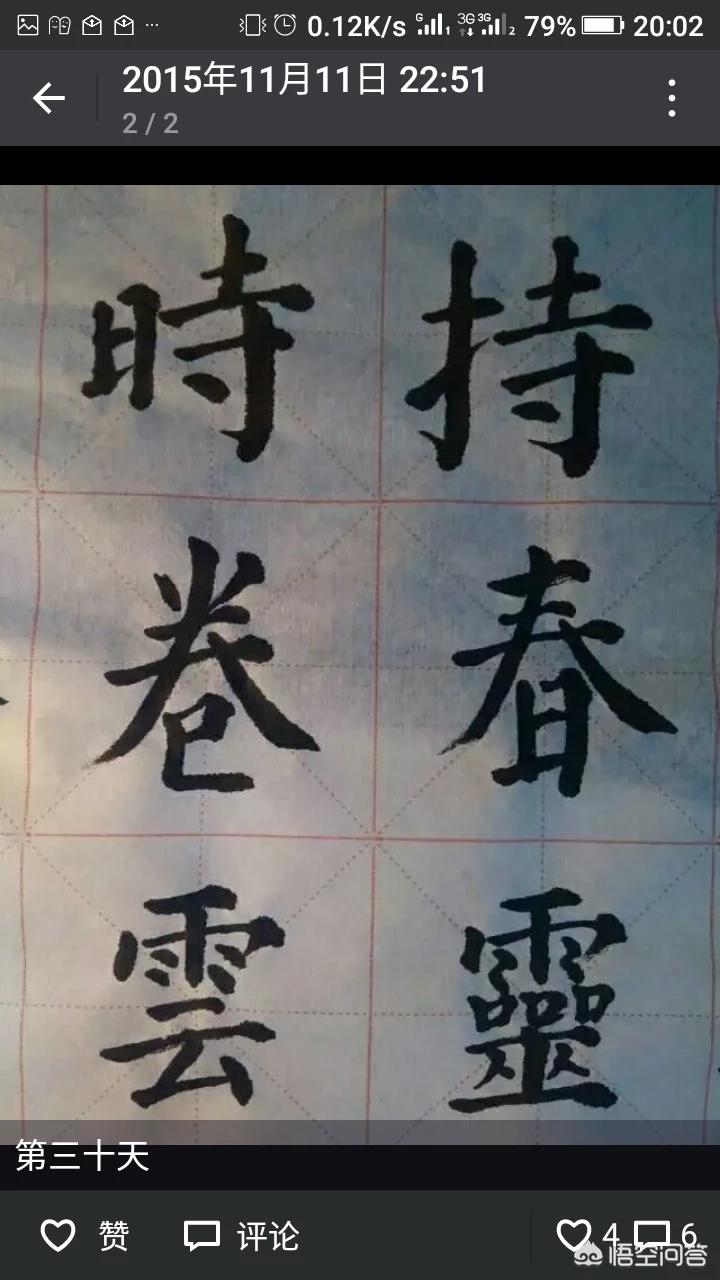 0.12K/s G 1 3G 3G 2 79% 20:02
2015年11月11日 22:51
2 / 2
持春靈
時卷雲
第三十天
赞 评论 4 6
悟空问答